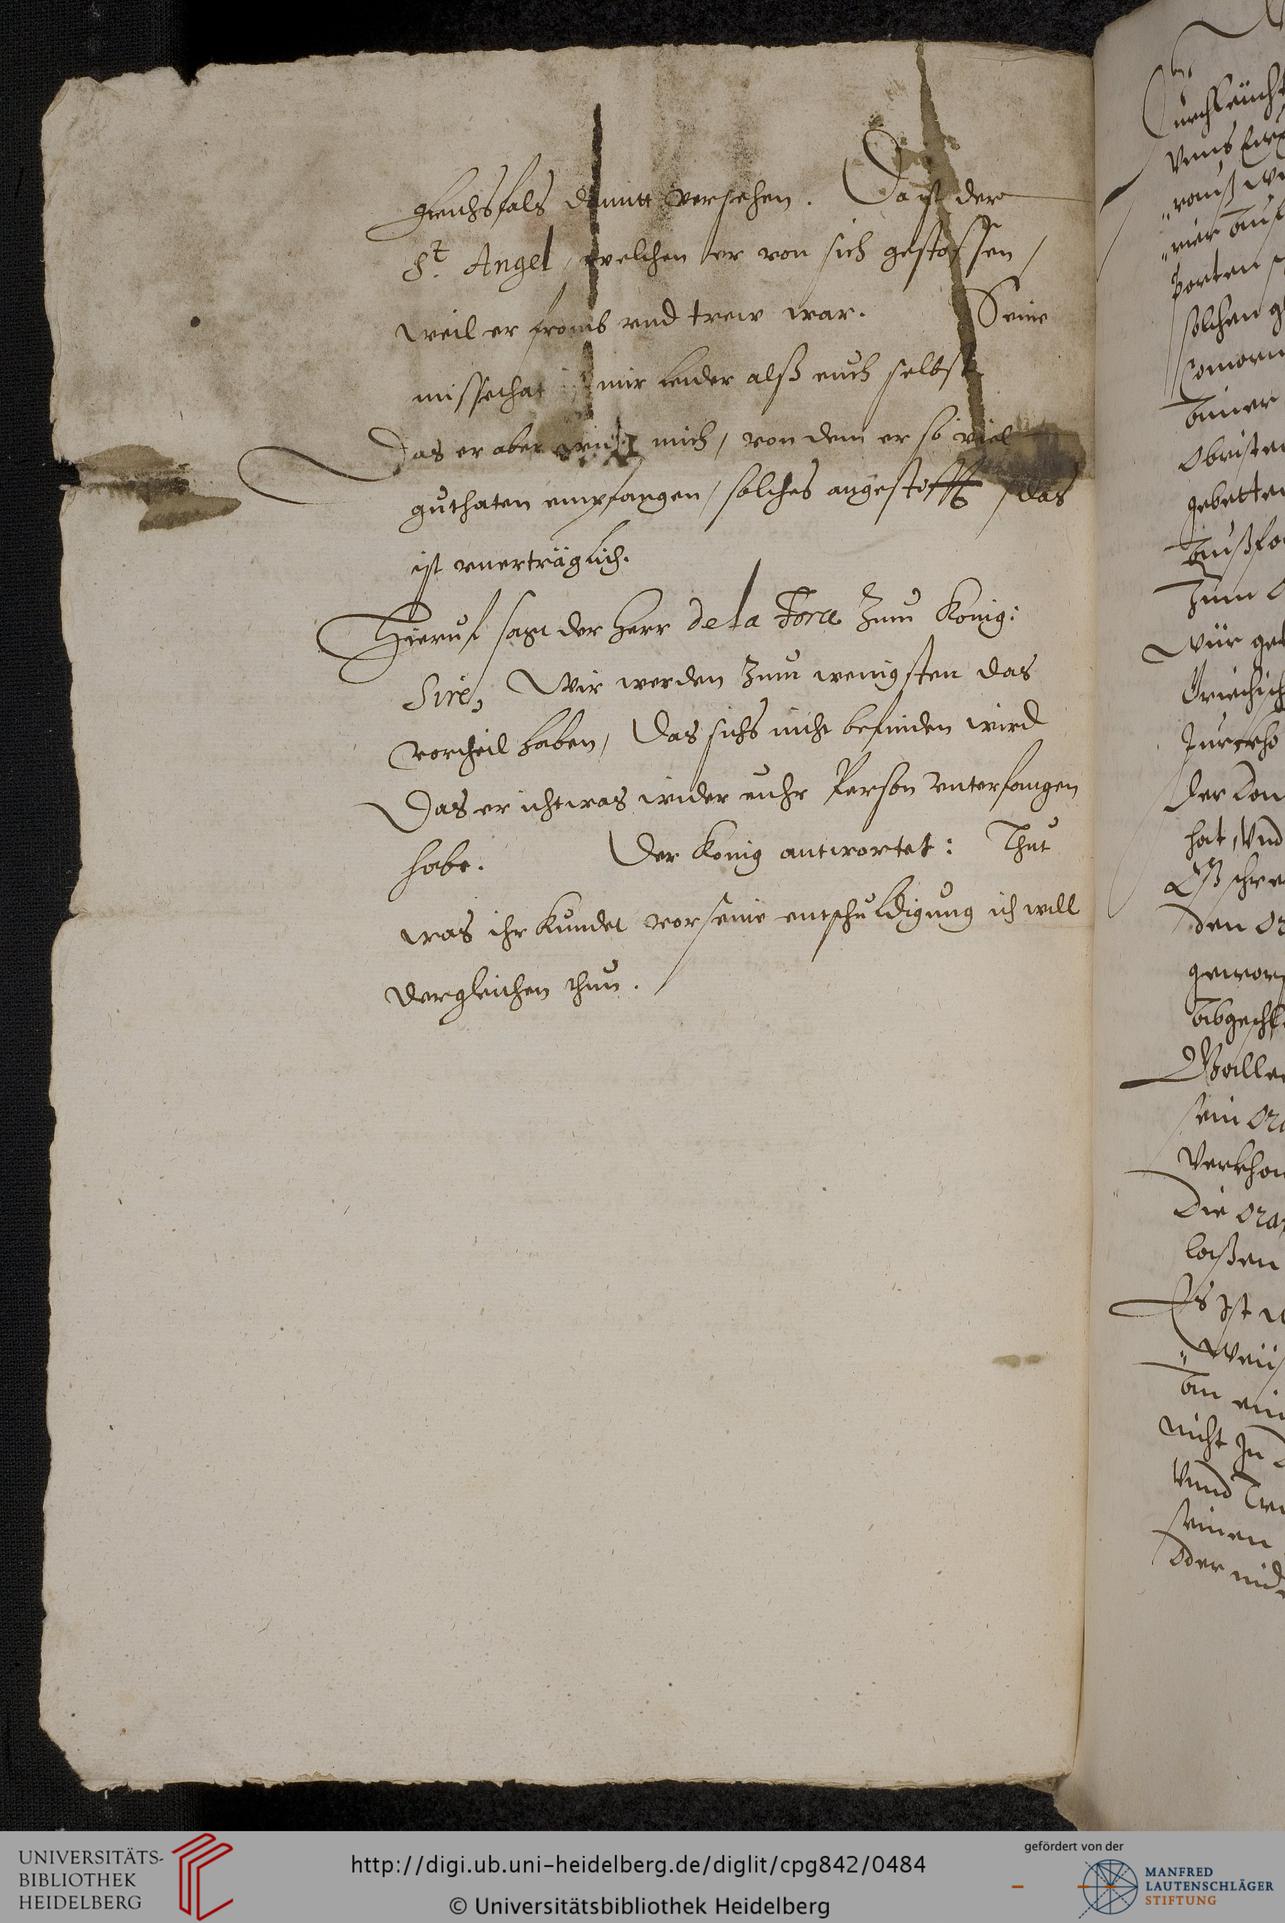 gleichsfals damitt versehen. Da ist der
St. Angel, welchen er von sich gestossen,
weil er fromb vnd trew war. Seine
missethat ist mir leider alß euch selbst
Das er aber mich, von dem er so viel
guthaten empfangen, solches angestifft, das
ist vnerträglich.
Hieruf sagt der Herr de la Force zum König:
Sire, Wir werden zum wenigsten das
vortheil haben, Das sichs nicht befinden wird
Das er ichtwas wider euhr Person vnterfangen
habe. Der König antwortet: Thut
was ihr kundet vor seine entschuldigung ich will
dergleichen thun.
durchleücht
vnns
Porten
solchen
Comorn
Obristen
gebetten
Zum
Würt
der
hat, Vnd
den
Abgeschk
sein
Die
laßen
Es Ist
An
nicht Zu
Vnnd
seinen
Oder
UNIVERSITÄTS-
BIBLIOTHEK
HEIDELBERG
http://digi.ub.uni-heidelberg.de/diglit/cpg842/0484
© Universitätsbibliothek Heidelberg
gefördert von der
MANFRED
LAUTENSCHLÄGER
STIFTUNG